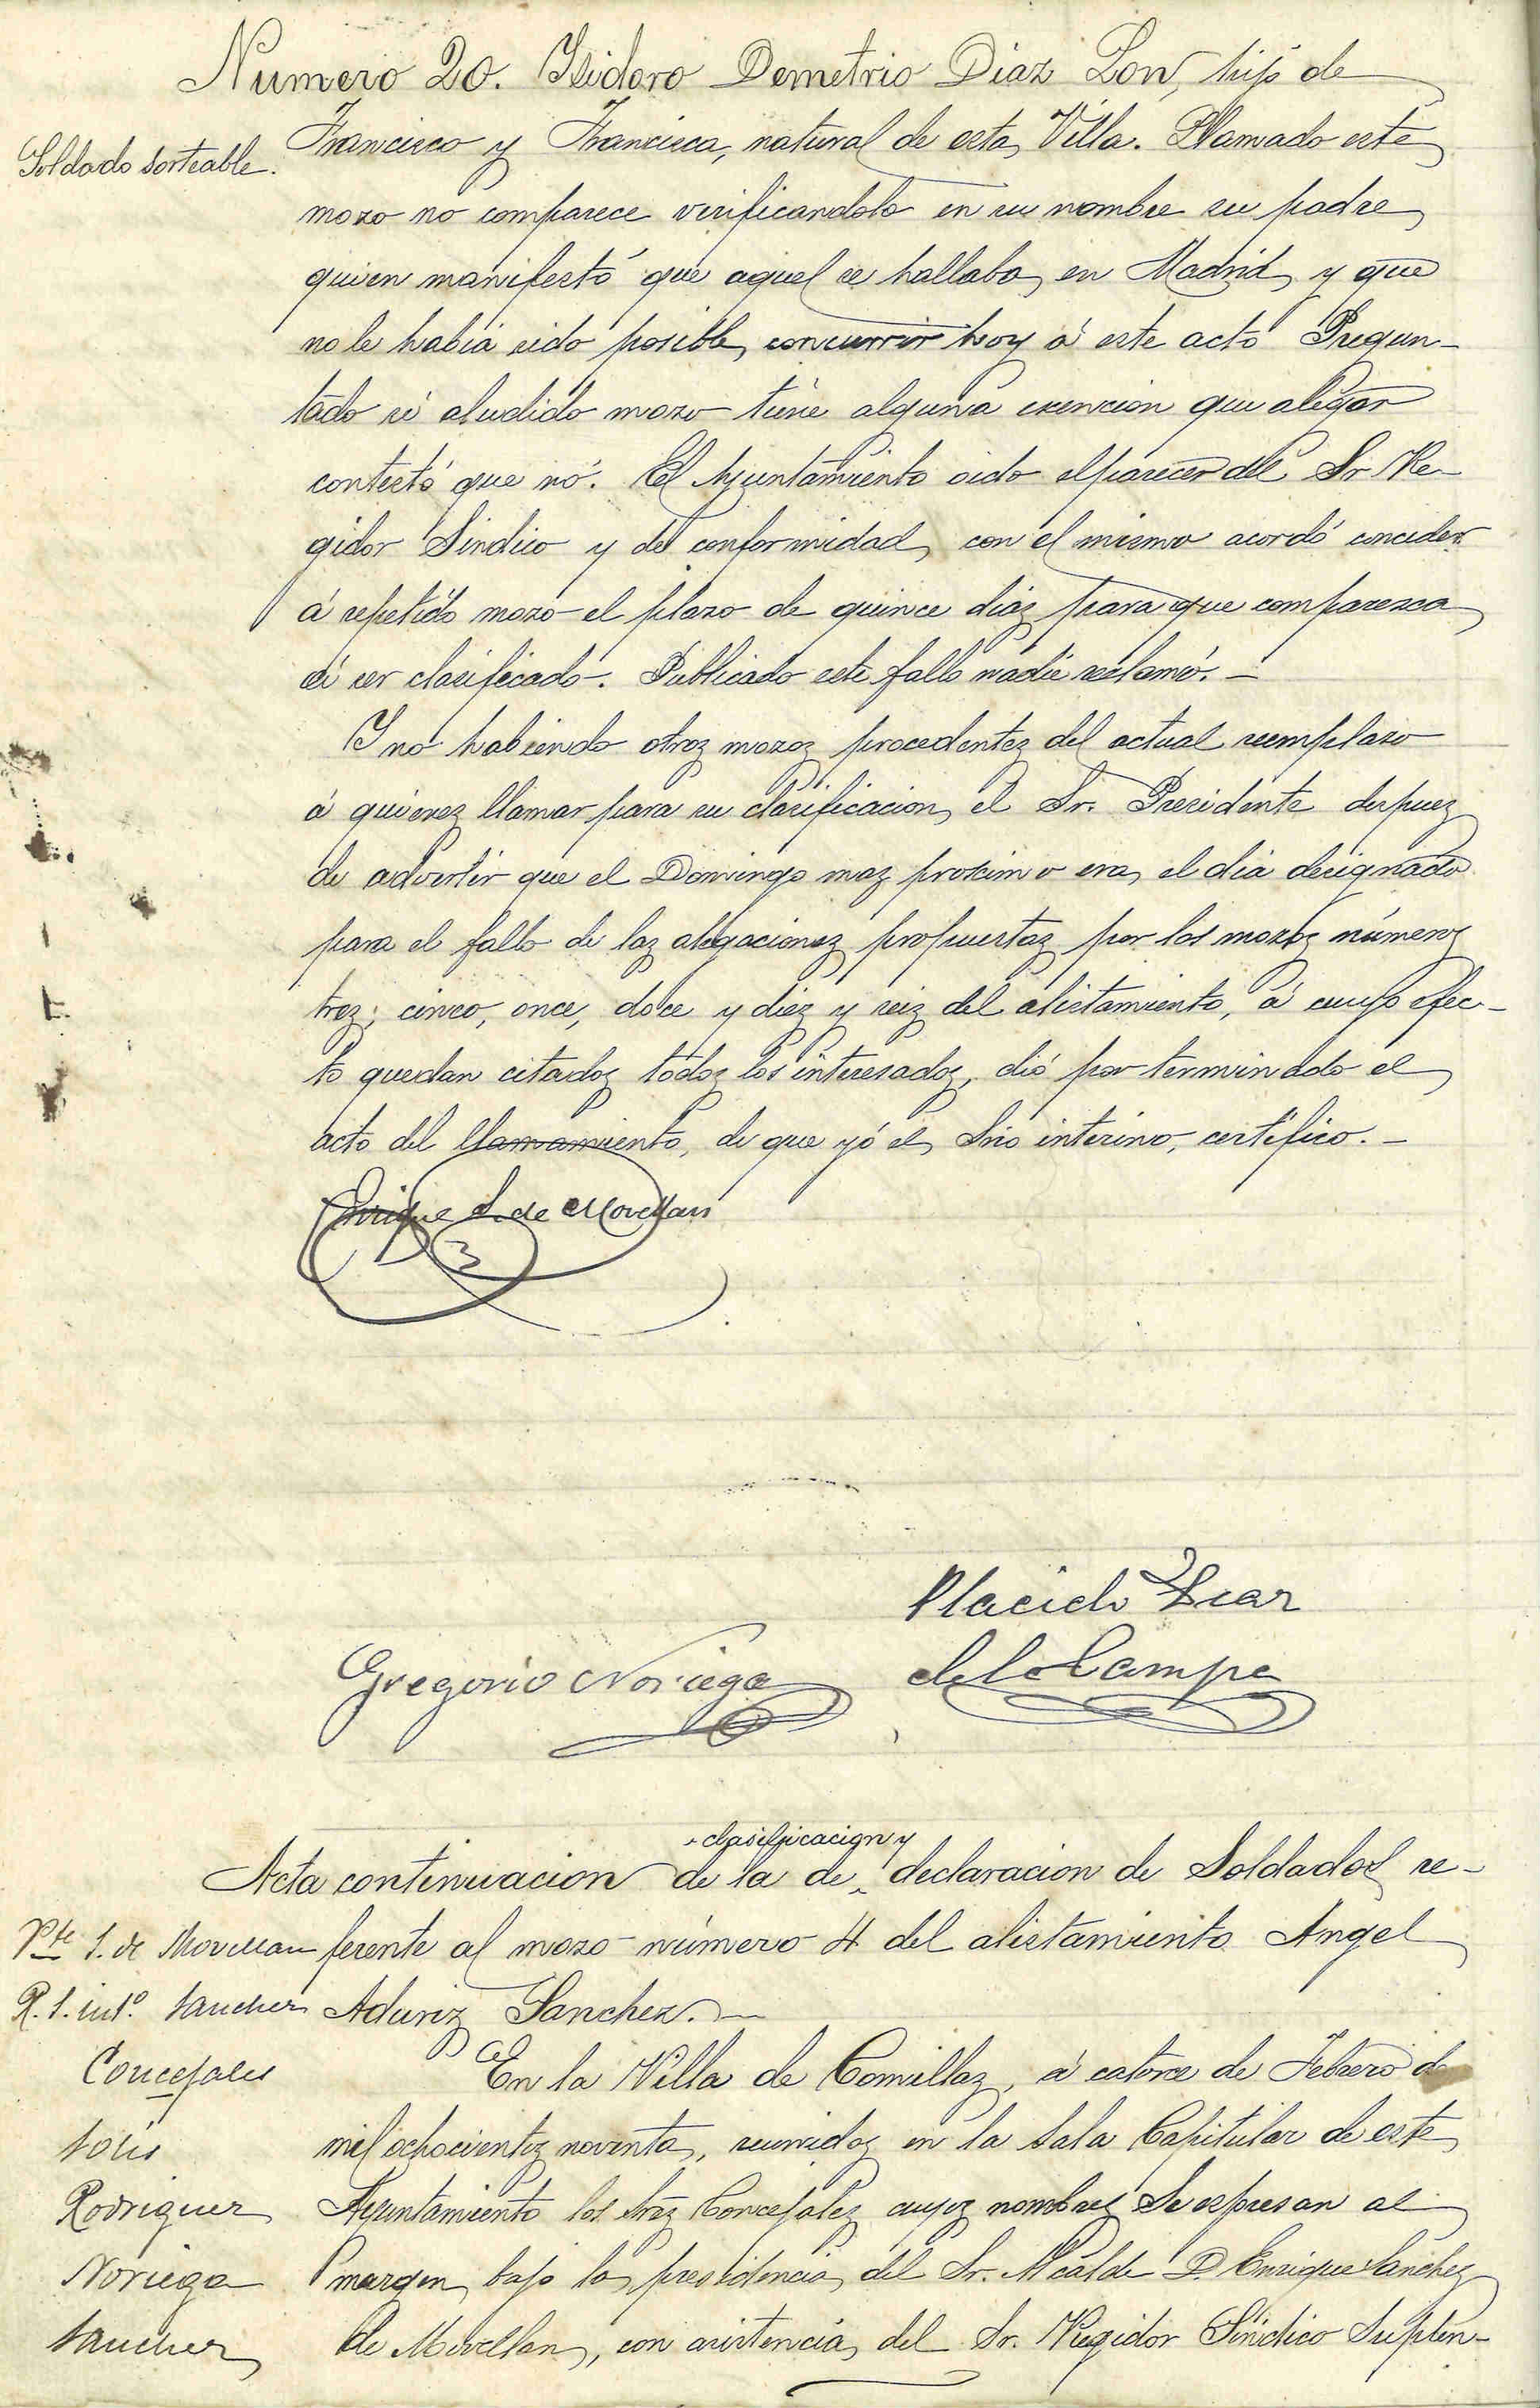 Numero 20. Isidoro Demetrio Diaz Lon, hijo de
Soldado sorteable.
Francisco y Francisca, natural de esta Villa. Llamado este
mozo no comparece verificandolo en su nombre su padre
quien manifestó que aquel se hallaba en Madrid y que
no le habia sido posible concurrir hoy á este acto Pregun-
tado si aludido mozo tiene alguna exencion que alegar
contestó que nó. El Ayuntamiento oido el parecer del Sr. Re-
gidor Sindico y de conformidad con el mismo acordó conceder
á repetido mozo el plazo de quince dias para que comparezca
á ser clasificado. Publicado este fallo nadie reclamó. -
Y no habiendo otros mozos procedentes del actual reemplazo
á quienes llamar para su clasificacion, el Sr. Presidente despues
de advertir que el Domingo mas proximo era el dia designado
para el fallo de las alegaciones propuestas por los mozos números
tres, cinco, once, doce y diez y seis del alistamiento, á cuyo efec-
to quedan citados todos los interesados, dió por terminado el
acto del llamamiento, de que yó el Srio interino, certifico. -
Enrique S. de Movellan
Placido Diaz
Gregorio Noriega
de la Campa
clasificacion y
Acta continuacion de la de declaracion de Soldados re-
Pte S. de Movellan
ferente al mozo número 4 del alistamiento Angel
R. S. intº. Sanchez
Aduriz Sanchez. -
Concejales
En la Villa de Comillas, á catorce de Febrero de
Solis
mil ochocientos noventa, reunidos en la Sala Capitular de este
Rodriguez
Ayuntamiento los Sres Concejales cuyos nombres Se espresan al
Noriega
margen, bajo la presidencia del Sr. Alcalde D. Enrique Sanchez
Sanchez
de Movellan, con asistencia del Sr. Regidor Sindico Suplen-